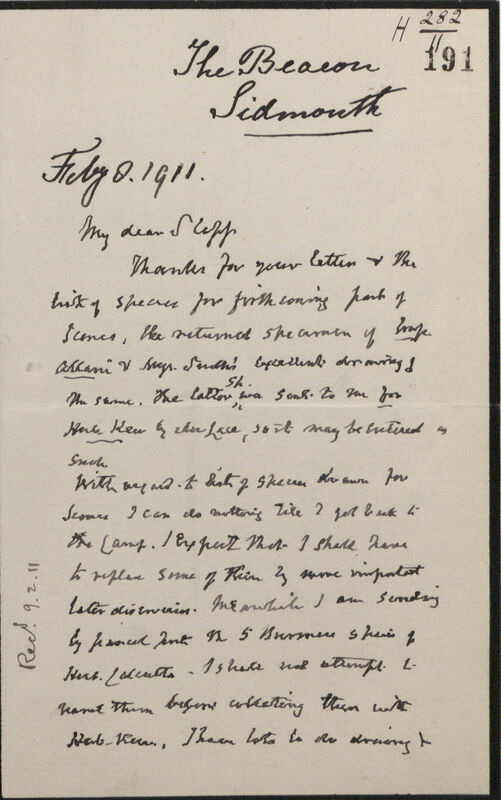 H 282/11
191
The Beacon
Sidmouth
Feby 8. 1911.
My dear
Thanks for your letter & the
list of species for forthcoming part of
Icones, the returned specimen of
& Smith's excellent drawing of
the same. The latter was sent to me for
Herb. Kew by, so it may be entered as
such
With regard to list of species drawn for
Icones I can do nothing till I get back to
the Camp. I expect that I shall have
to replace some of them by more important
later discoveries. Meanwhile I am sending
by parcel post the 5 Burmese species of
Herb. Calcutta. I shall not attempt to
name them before collating them with
Herb. Kew. I have lots to do drawing &
Recd. 9.2.11